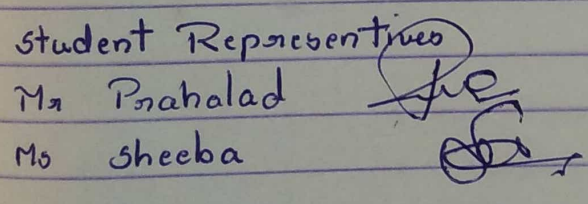 Student Representives
Mr Prahalad
Ms Sheeba